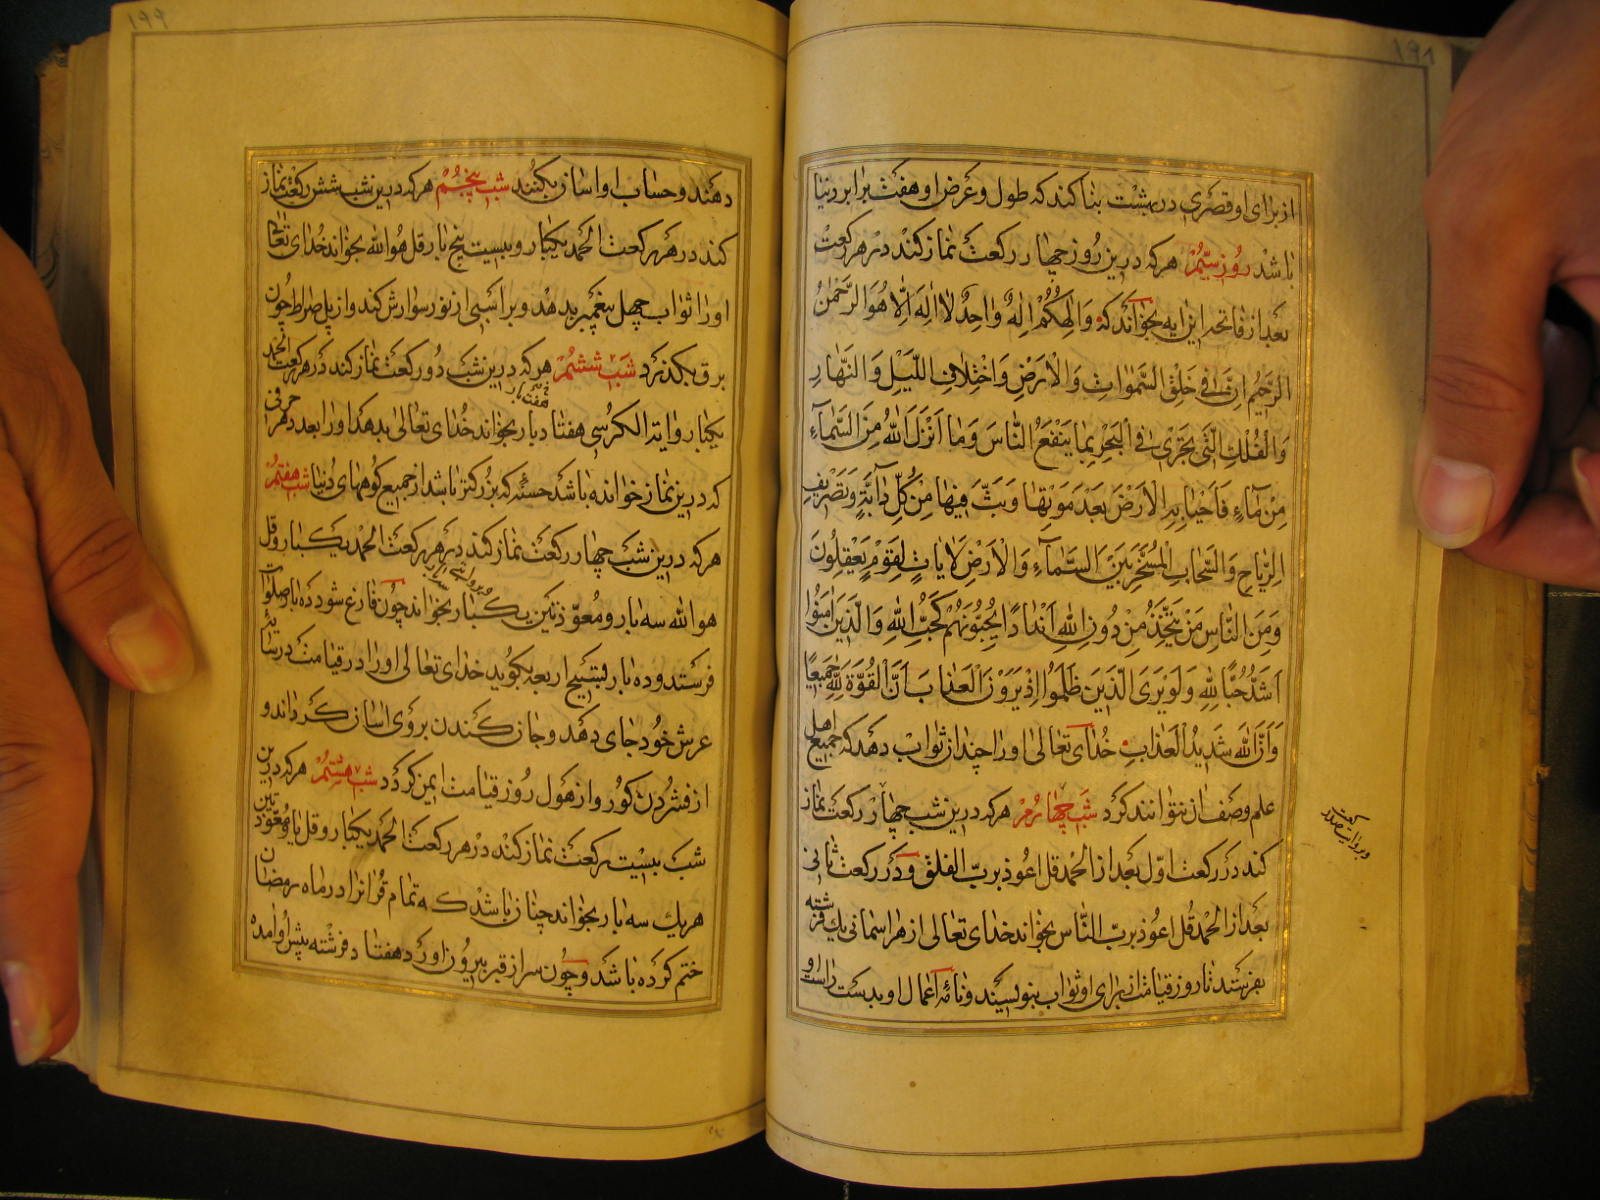 ۱۹۸
از برای او قصری در بهشت بنا کند که طول و عرض او هفت برابر دنیا
باشد روز سیّم هرکه درین روز چهار رکعت نماز کند در هر رکعت
بعد از فاتحه این ایه بخواند که وَاِلٰهُکُمْ اِلٰهٌ وٰاحِدٌ لاٰ اِلٰهَ اِلّاٰ هُوَ الرَّحْمٰنُ
الرَّحیمُ اِنَّ فی خَلْقِ السَّمٰوٰاتِ وَالْاَرْضِ وَاخْتِلاٰفِ اللَّیْلِ وَالنَّهٰارِ
وَالْفُلْکِ الَّتی تَجْری فِی الْبَحْرِ بِمٰا یَنْفَعُ النّٰاسَ وَمٰا اَنْزَلَ اللّٰهُ مِنَ السَّمٰاءِ
مِنْ مٰاءٍ فَاَحْیٰا بِهِ الْاَرْضَ بَعْدَ مَوْتِهٰا وَبَثَّ فیهٰا مِنْ کُلِّ دٰابَّةٍ وَتَصْریفِ
الرِّیٰاحِ وَالسَّحٰابِ الْمُسَخَّرِ بَیْنَ السَّمٰاءِ وَالْاَرْضِ لَاٰیٰاتٍ لِقَوْمٍ یَعْقِلُونَ
وَمِنَ النّٰاسِ مَنْ یَتَّخِذُ مِنْ دُونِ اللّٰهِ اَنْدٰادًا یُحِبُّونَهُمْ کَحُبِّ اللّٰهِ وَالَّذینَ اٰمَنُوا
اَشَدُّ حُبًّا لِلّٰهِ وَلَوْ یَرَی الَّذینَ ظَلَمُوا اِذْ یَرَوْنَ الْعَذٰابَ اَنَّ الْقُوَّةَ لِلّٰهِ جَمیعًا
وَاَنَّ اللّٰهَ شَدیدُ الْعَذٰابِ خدای تعالی اورا چندان ثواب دهد که جمیع اهل
علم وصف ان نتوانند کرد شب چهارم هرکه درین شب چهار رکعت نماز
کند در رکعت اوّل بعد از الحمد قل اعوذ بربّ الفلق و در رکعت ثانی
بعد از الحمد قل اعوذ بربّ النّاس بخواند خدای تعالی از هر اسمانی یك فرشته
بفرستد تا روز قیامت از برای او ثواب بنویسند و نامه اعمال او بدست راست او
و بروایت صد رکعت
۱۹۹
دهند و حساب او اسان بکنند شب پنجم هرکه درین شب شش رکعت نماز
کند در هر رکعت الحمد یکبار و بیست پنج بار قل هو الله بخواند خدای تعالی
اورا ثواب چهل پیغمبر بدهد و بر اسبی از نور سوارش کند و از پل صراط چون
برق بگذرد شب ششم هرکه درین شب دو رکعت نماز کند در هر رکعت الحمد
یکبار و ایة الکرسی هفتاد بار بخواند خدای تعالی بدهد اورا بعدد هر حرفی
هفت بار
که درین نماز خوانده باشد حسنه که بزرکتر باشد از جمیع کوههای دنیا شب هفتم
هرکه درین شب چهار رکعت نماز کند در هر رکعت الحمد یکبار و قل
هو الله سه بار و معوّذتین یکبار بخواند چون فارغ شود ده بار صلوات
فرستد و ده بار تسبیح اربعه بکوید خدای تعالی اورا در قیامت در سایه
عرش خود جای دهد و جان کندن بر وی اسان کرداند و
از فشردن کور و از هول روز قیامت ایمن کردد شب هشتم هرکه درین
شب بیست رکعت نماز کند در هر رکعت الحمد یکبار و قل یا و معوذتین
هر یك سه بار بخواند چنان باشد که تمام قران را در ماه رمضان
ختم کرده باشد و چون سر از قبر بیرون اورد هفتاد فرشته پیش او امده